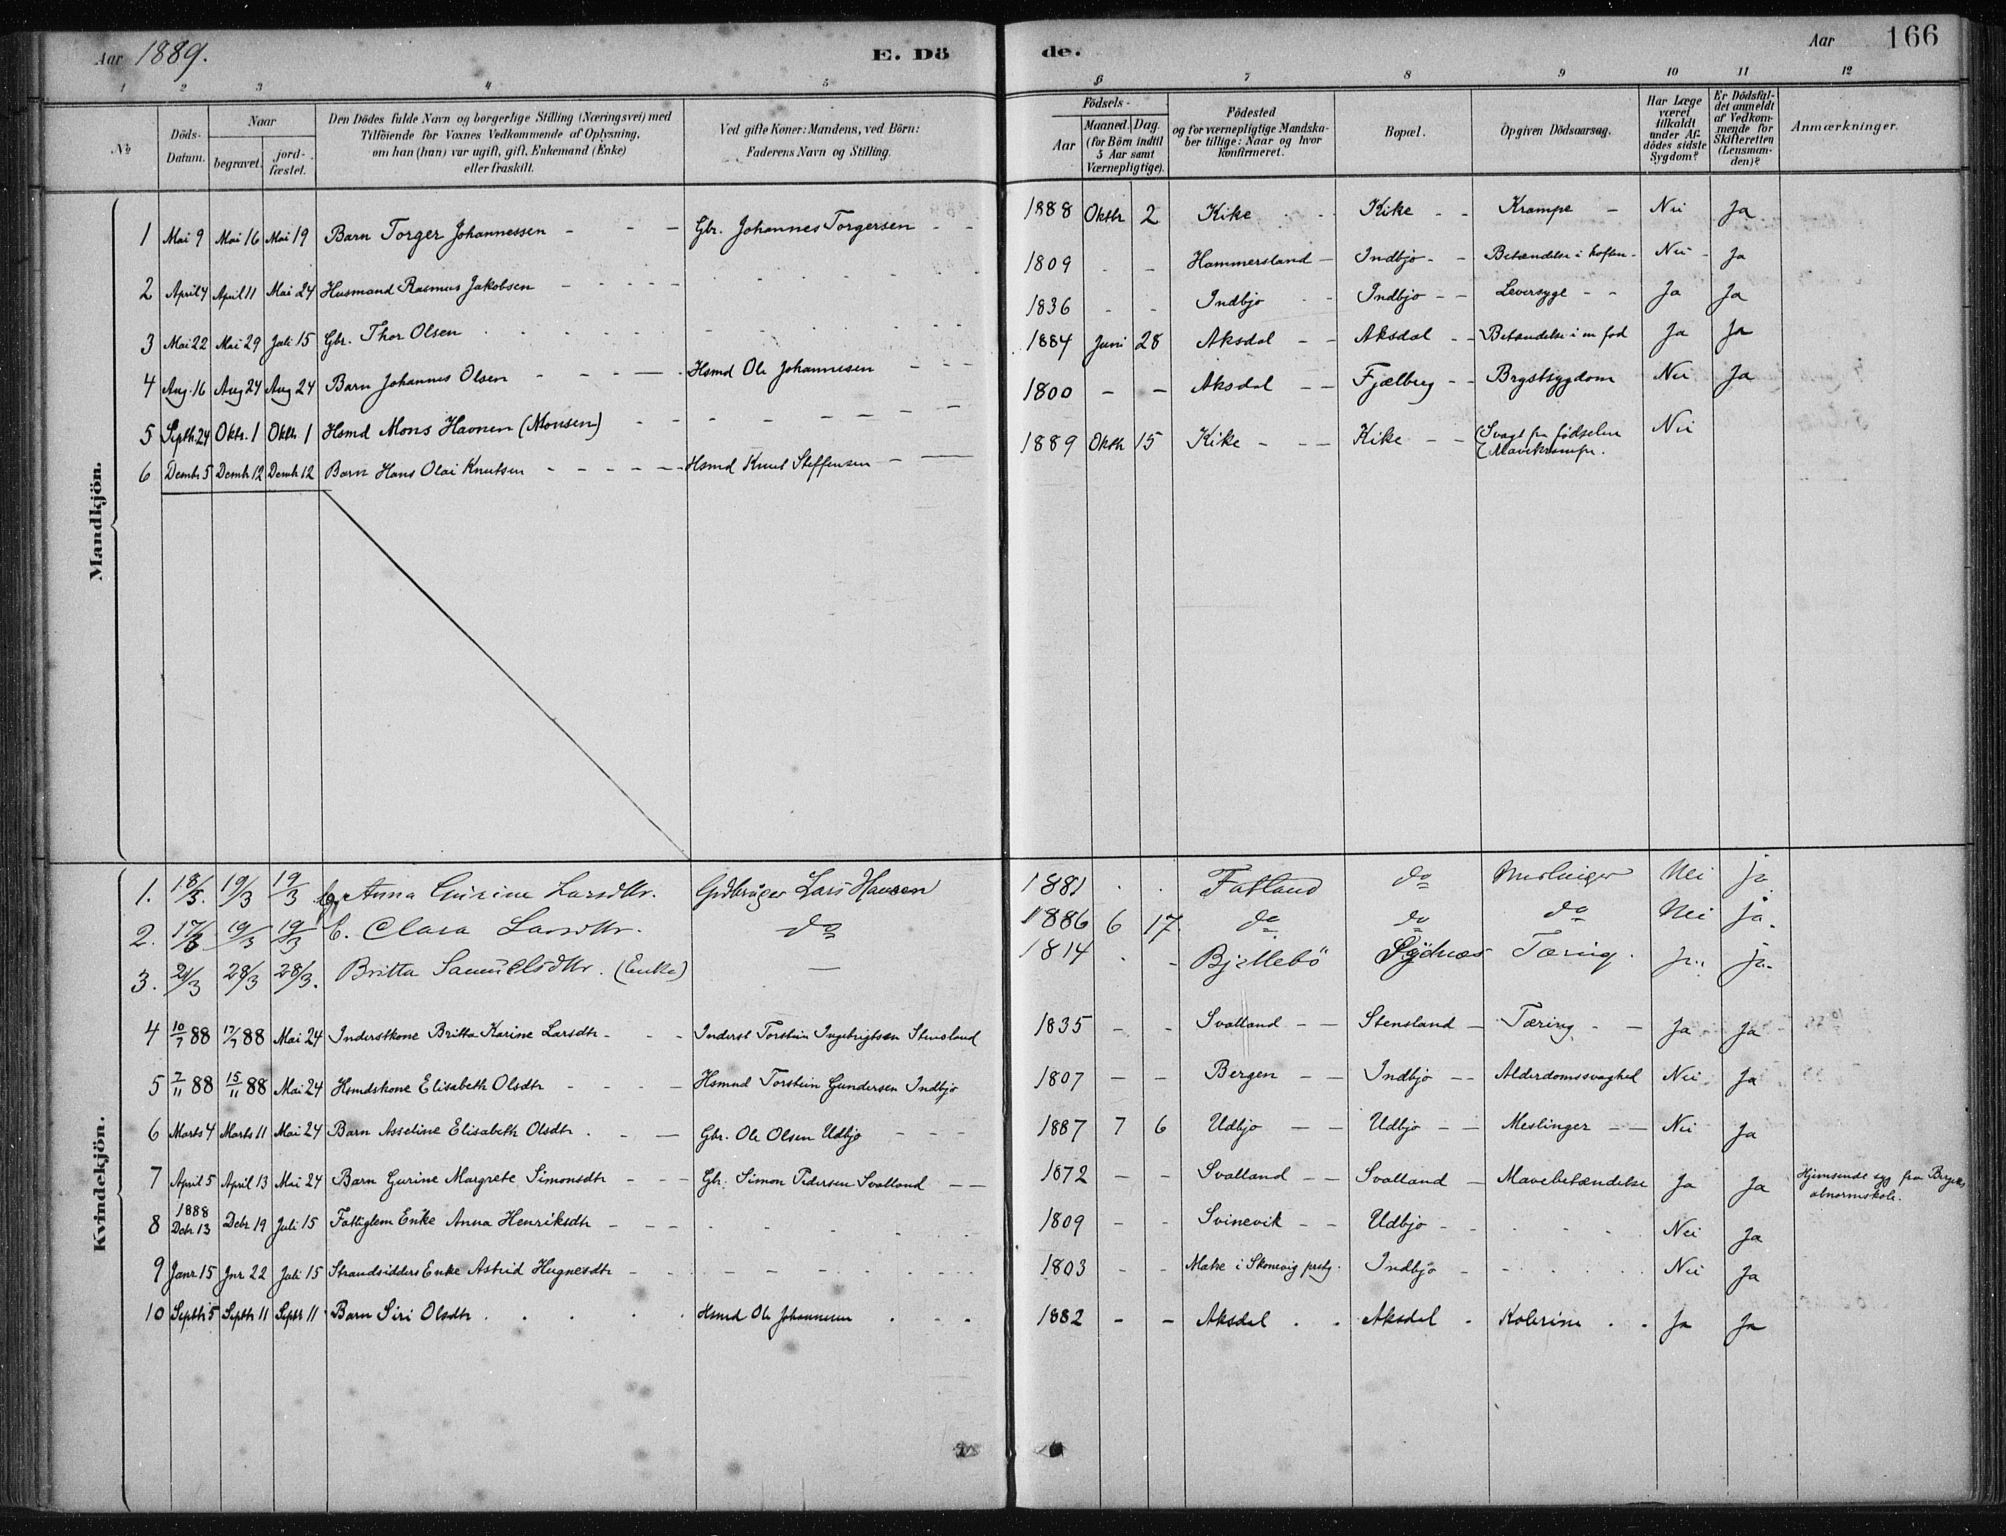 Aar 1889. E. Dö de. Aar 166
1 2 3 4 5 6 7 8 9 10 11 12
No
Döds-Datum.
Naar
begravet.
jord-fæstet.
Den Dödes fulde Navn og borgerlige Stilling (Næringsvei) med
Tilföiende for Voxnes Vedkommende af Oplysning,
om han (hun) var ugift, gift, Enkemand (Enke)
eller fraskilt.
Ved gifte Koner: Mandens, ved Börn:
Faderens Navn og Stilling.
Födsels-
Aar
Maaned. Dag.
(for Börn indtil
5 Aar samt
Værnepligtige).
Födested
og for værnepligtige Mandska-
ber tillige: Naar og hvor
konfirmeret.
Bopæl.
Opgiven Dödsaarsag.
Har Læge
været
tilkaldt
under Af-
dödes sidste
Sygdom?
Er Dödsfal-
det anmeldt
af Vedkom-
mende for
Skifteretten
(Lensman-
den)?
Anmærkninger.
Mandkjön.
1 Mai 9 Mai 16 Mai 19 Barn Torger Johannessen - - - Gbr. Johannes Torgersen - - 1888 Oktbr 2 Kike - - Kike - - Krampe - Nei Ja
2 April 4 April 11 Mai 24 Husmand Rasmus Jakobsen - - - - - 1809 - - Hammersland - Indbjo - - Betændelse i hoften - Nei - Ja
3 Mai 22 Mai 29 Juli 15 Gbr. Thor Olsen 1836 - - Indbjo - - Indbjo - - Leversyge - - Ja Ja
4 Aug. 16 Aug 24 Aug 24 Barn Johannes Olsen - - - - Hsmd Ole Johannesen - - - 1884 Juni 28 Aksdal - - Aksdal - - Betændelse i en fod Ja Ja
5 Septbr. 24 Oktbr. 1 Oktbr 1 Hsmd Mons Havnen (Monsen) - - 1800 - - Aksdal - - Fjælberg - - Brystsygdom Nei Ja
6 Decmbr 5 Decmbr 12 Decmbr 12 Barn Hans Olai Knutsen - - - - - Hsmd Knut Steffensen - - 1889 Oktbr 15 Kike - - - Kike - - (Svagt fra födselen Nei
(Mavekrampe.
Kvindekjön.
1. 18/3. 19/3 19/3 Anna Gurine Larsdtr. Grdbruger Lars Hansen 1881 . . Fatland do Meslinger Nei ja
2. 17/3 19/3 19/3 B. Clara Larsdtr. do 1886 6 17. do do do Nei ja.
3. 21/3 28/3 28/3. Britta Samuelsdtr. (Enke) - 1814 . - Bjellebö Tæring. ja. ja.
4 10/7 88 17/7 88 Mai 24 Inderstkone Britta Karine Larsdtr - - - Inderst Torstein Ingebrigtsen Stensland 1835 - - Svalland - - Stensland - Tæring - - Ja Ja
5 7/11 88 15/11 88 Mai 24 Hsmdskone Elisabeth Olsdtr - - - - Hsmnd Torstein Gundersen Indbjo 1807 - - Bergen - - Indbjo - - Alderdomssvaghed Nei Ja
6 Marts 4 Marts 11 Mai 24 Barn Asseline Elisabeth Olsdtr . - - Gbr. Ole Olsen Udbjo - - - 1887 7 6 Udbjo - - Udbjo - - Meslinger - - Nei Ja
7 April 5 April 13 Mai 24 Barn Gurine Margrete Simonsdtr - - - Gbr. Simon Pedersen Svalland - - 1872 - - Svalland - - Svalland - Mavebetændelse Ja Ja Hjemsendt syg fra Bergens
abnormskole.
8 1888 Debr 13 Debr 19 Juli 15 Fattiglem Enke Anna Henriksdtr - - - 1809 - - Svinevik - - Udbjo - Nei Ja
9 Janr 15 Jnr 22 Juli 15 Strandsidders Enke Astrid Hugnesdtr - - - 1803 - - Matre i Skonevig prstg. Indbjo - Nei Ja
10 Septbr 5 Septbr 11 Septr 11 Barn Siri Olsdtr Hsmd Ole Johannesen 1882 - - Aksdal . . Aksdal - Kolerine . . Ja Ja